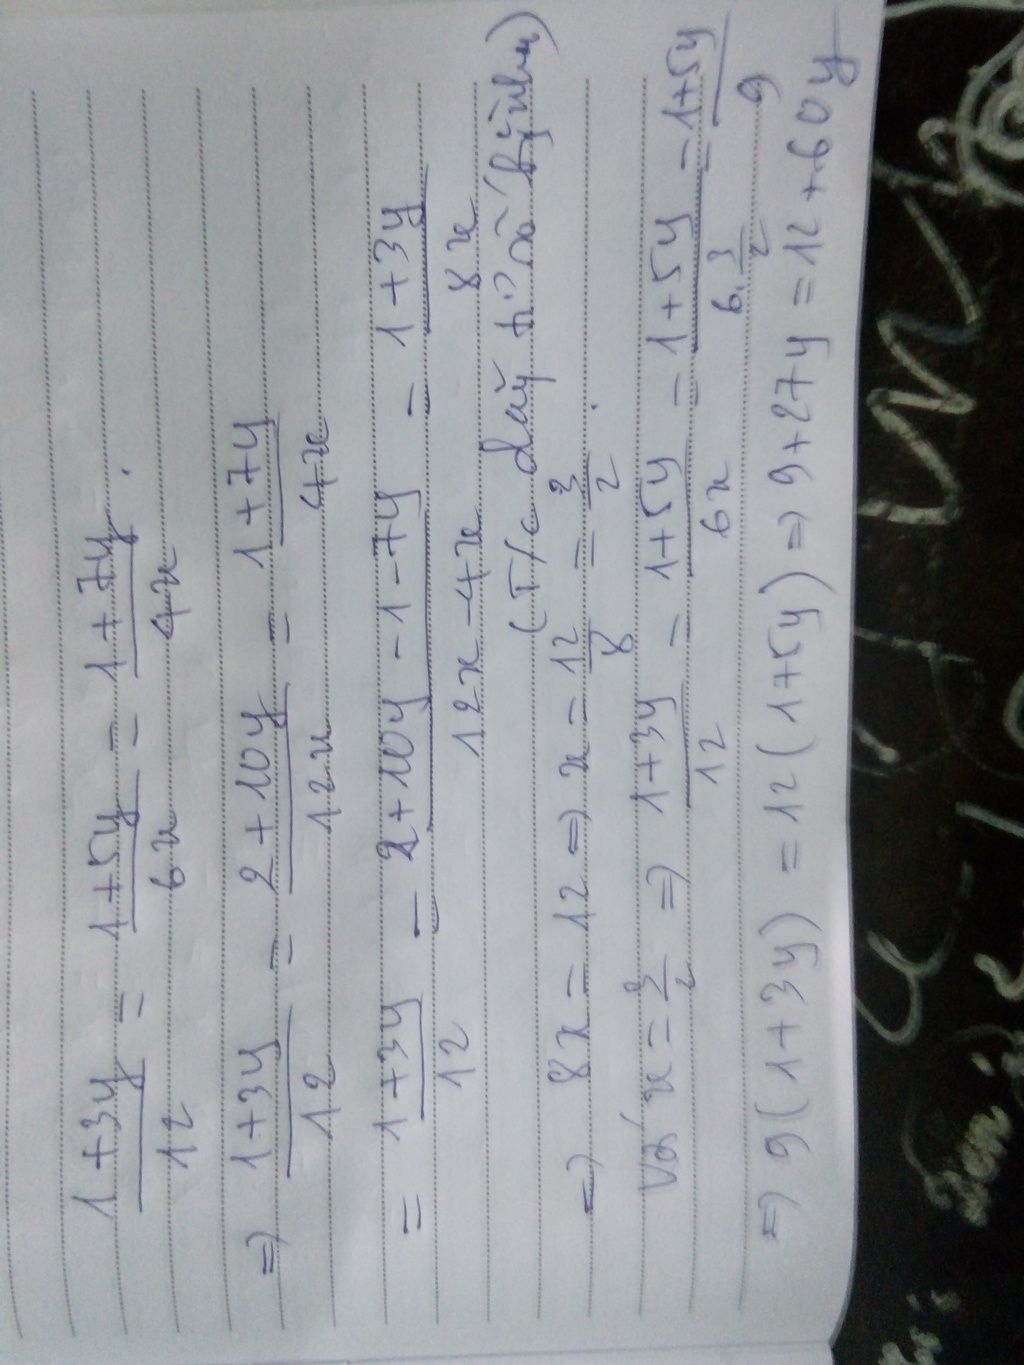 1+3y/12 = 1+5y/6x = 1+7y/4x.
=> 1+3y/12 = 2+10y/12x = 1+7y/4x
= 1+3y/12 = 2+10y-1-7y/12x-4x = 1+3y/8x
(T/c dãy tỉ số bằng nhau)
=> 8x = 12 => x = 12/8 = 3/2.
Với x = 3/2 => 1+3y/12 = 1+5y/6x = 1+5y/6.3/2 = 1+5y/9
=> 9(1+3y) = 12(1+5y) => 9+27y = 12+60y